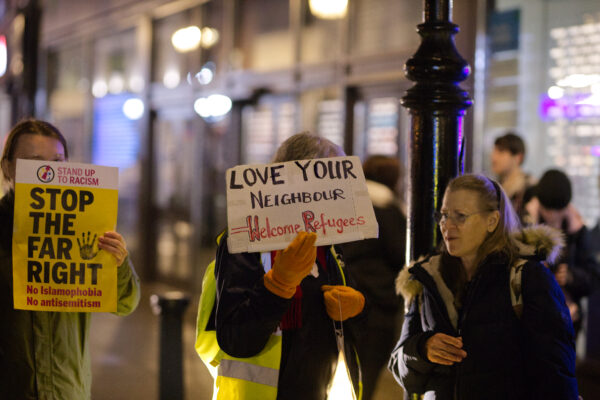 STAND UP
TO RACISM
STOP
THE
FAR
RIGHT
No Islamophobia
No antisemitism
LOVE YOUR
NEIGHBOUR
-Welcome Refugees